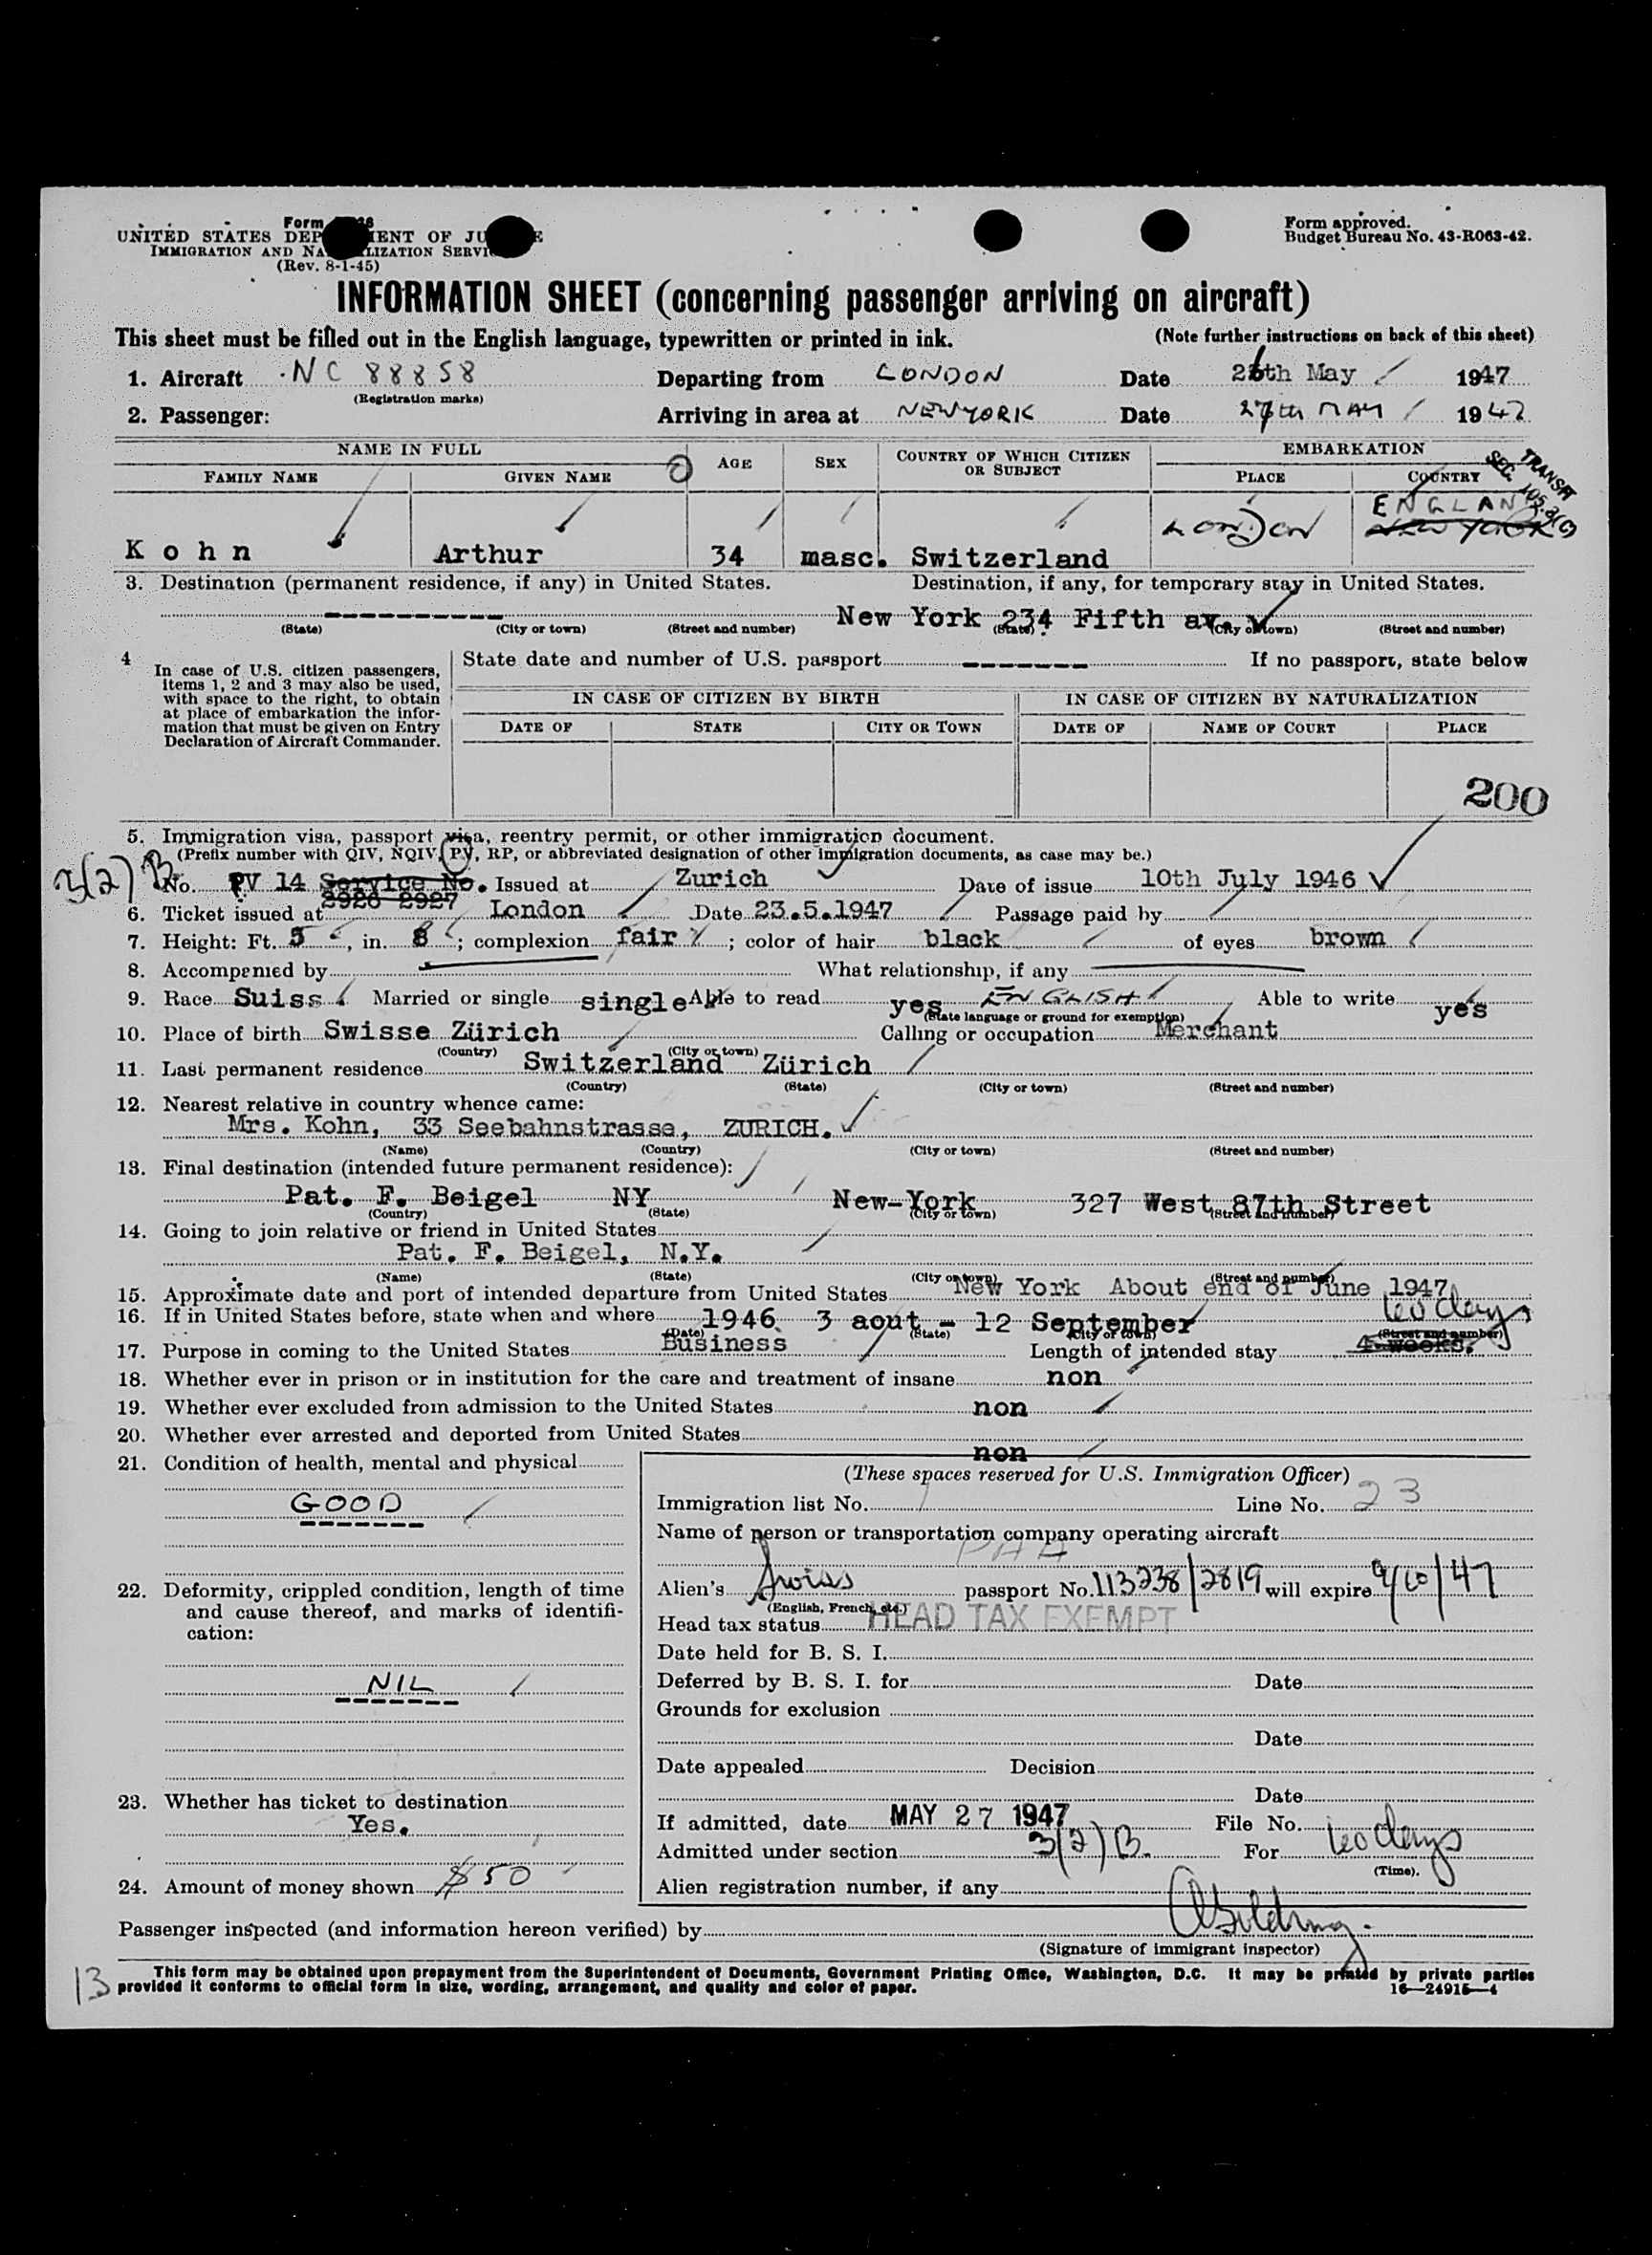 Form
UNITED STATES DEP ENT OF JU E
IMMIGRATION AND NA LIZATION SERVI
(Rev. 8-1-45)
Form approved.
Budget Bureau No. 43-R063-42.
INFORMATION SHEET (concerning passenger arriving on aircraft)
This sheet must be filled out in the English language, typewritten or printed in ink. (Note further instructions on back of this sheet)
1. Aircraft NC 88858 Departing from LONDON Date 26th May 1947
(Registration marks)
2. Passenger: Arriving in area at NEW YORK Date 27th MAY 1947
NAME IN FULL AGE SEX COUNTRY OF WHICH CITIZEN OR SUBJECT EMBARKATION
FAMILY NAME GIVEN NAME PLACE COUNTRY
TRANSIT
SEC. 105.3(C)
ENGLAND
Kohn Arthur 34 masc. Switzerland LONDON NEW YORK
3. Destination (permanent residence, if any) in United States. Destination, if any, for temporary stay in United States.
---------- New York 234 Fifth av.
(State) (City or town) (Street and number) (State) (City or town) (Street and number)
4 In case of U.S. citizen passengers, items 1, 2 and 3 may also be used, with space to the right, to obtain at place of embarkation the information that must be given on Entry Declaration of Aircraft Commander.
State date and number of U.S. passport ------- If no passport, state below
IN CASE OF CITIZEN BY BIRTH IN CASE OF CITIZEN BY NATURALIZATION
DATE OF STATE CITY OR TOWN DATE OF NAME OF COURT PLACE
200
5. Immigration visa, passport visa, reentry permit, or other immigration document.
(Prefix number with QIV, NQIV, PV, RP, or abbreviated designation of other immigration documents, as case may be.)
3(2)B No. PV 14 Service No. Issued at Zurich Date of issue 10th July 1946
2926 2927
6. Ticket issued at London Date 23.5.1947 Passage paid by
7. Height: Ft. 5, in. 8; complexion fair; color of hair black of eyes brown
8. Accompenied by What relationship, if any
9. Race Suiss Married or single single Able to read yes ENGLISH Able to write yes
(State language or ground for exemption)
10. Place of birth Swisse Zürich Calling or occupation Merchant
(Country) (City or town)
11. Last permanent residence Switzerland Zürich
(Country) (State) (City or town) (Street and number)
12. Nearest relative in country whence came:
Mrs. Kohn, 33 Seebahnstrasse, ZURICH.
(Name) (Country) (City or town) (Street and number)
13. Final destination (intended future permanent residence):
Pat. F. Beigel NY New-York 327 West 87th Street
(Country) (State) (City or town) (Street and number)
14. Going to join relative or friend in United States
Pat. F. Beigel, N.Y.
(Name) (State) (City or town) (Street and number)
15. Approximate date and port of intended departure from United States New York About end of June 1947
16. If in United States before, state when and where 1946 3 aout - 12 September 60 days
(Date) (State) (City or town) (Street and number)
17. Purpose in coming to the United States Business Length of intended stay 4 weeks.
18. Whether ever in prison or in institution for the care and treatment of insane non
19. Whether ever excluded from admission to the United States non
20. Whether ever arrested and deported from United States
non
21. Condition of health, mental and physical
GOOD
22. Deformity, crippled condition, length of time and cause thereof, and marks of identification:
NIL
23. Whether has ticket to destination
Yes.
24. Amount of money shown $50
(These spaces reserved for U.S. Immigration Officer)
Immigration list No. 1 Line No. 23
Name of person or transportation company operating aircraft
PAA
Alien's Swiss passport No. 113238/2819 will expire 9/10/47
(English, French, etc.)
Head tax status HEAD TAX EXEMPT
Date held for B. S. I.
Deferred by B. S. I. for Date
Grounds for exclusion
Date
Date appealed Decision
Date
If admitted, date MAY 27 1947 File No.
Admitted under section 3(2)B. For 60 days
(Time).
Alien registration number, if any
Passenger inspected (and information hereon verified) by
(Signature of immigrant inspector)
13
This form may be obtained upon prepayment from the Superintendent of Documents, Government Printing Office, Washington, D.C. It may be printed by private parties
provided it conforms to official form in size, wording, arrangement, and quality and color of paper. 16—24915—4